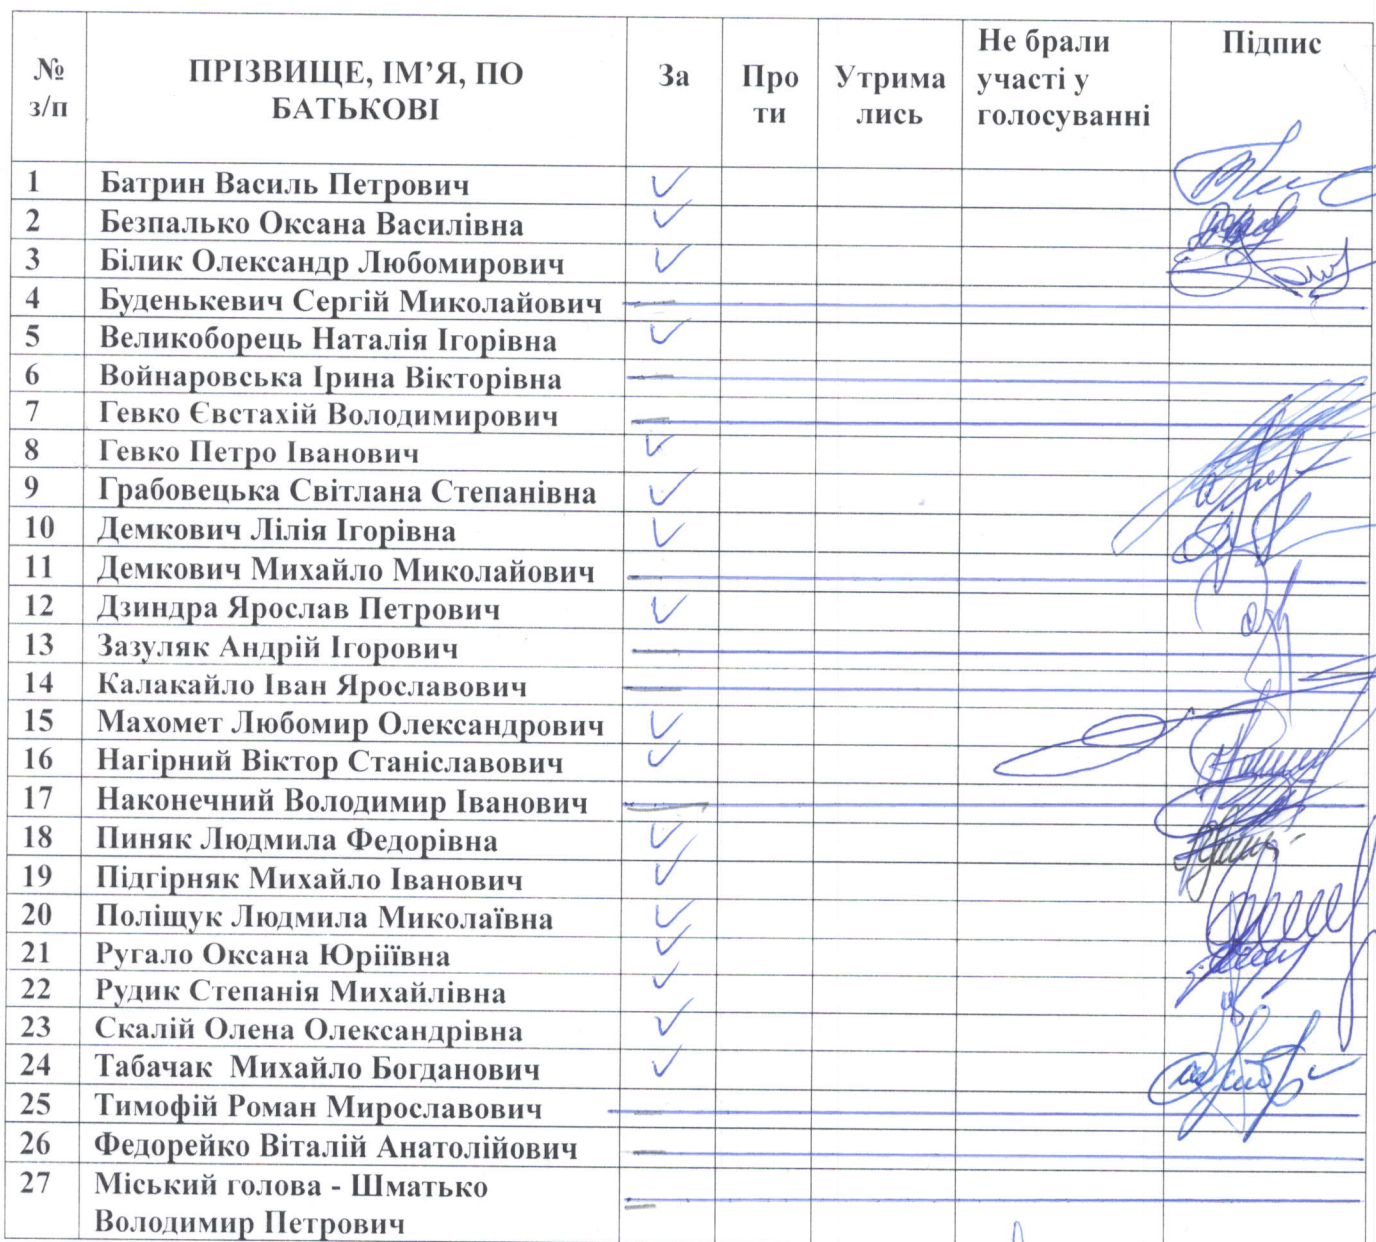 № з/п ПРІЗВИЩЕ, ІМ’Я, ПО БАТЬКОВІ За Про ти Утрима лись Не брали участі у голосуванні Підпис
1 Батрин Василь Петрович ✓
2 Безпалько Оксана Василівна ✓
3 Білик Олександр Любомирович ✓
4 Буденькевич Сергій Миколайович
5 Великоборець Наталія Ігорівна ✓
6 Войнаровська Ірина Вікторівна
7 Гевко Євстахій Володимирович
8 Гевко Петро Іванович ✓
9 Грабовецька Світлана Степанівна ✓
10 Демкович Лілія Ігорівна ✓
11 Демкович Михайло Миколайович
12 Дзиндра Ярослав Петрович ✓
13 Зазуляк Андрій Ігорович
14 Калакайло Іван Ярославович
15 Махомет Любомир Олександрович ✓
16 Нагірний Віктор Станіславович ✓
17 Наконечний Володимир Іванович
18 Пиняк Людмила Федорівна ✓
19 Підгірняк Михайло Іванович ✓
20 Поліщук Людмила Миколаївна ✓
21 Ругало Оксана Юріїївна ✓
22 Рудик Степанія Михайлівна ✓
23 Скалій Олена Олександрівна ✓
24 Табачак Михайло Богданович ✓
25 Тимофій Роман Мирославович
26 Федорейко Віталій Анатолійович
27 Міський голова - Шматько
Володимир Петрович